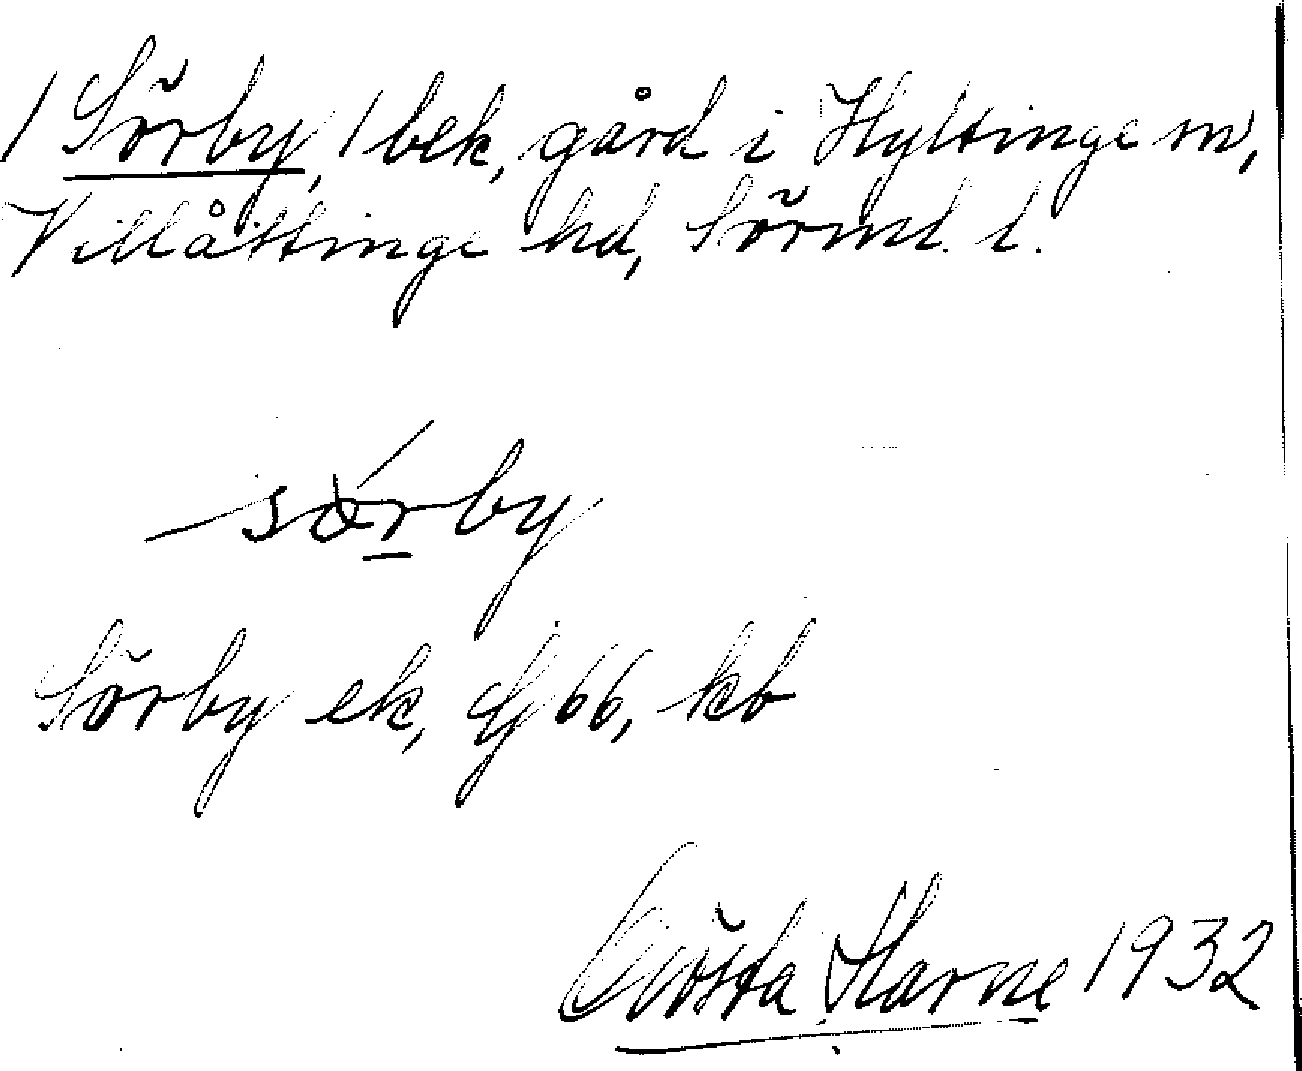 / Sörby, / bek, gård i Hyltinge sn,
Villåttinge hd, Sörml. l.
sörby
Sörby ek, Gj 66, kb
Gösta Harne 1932